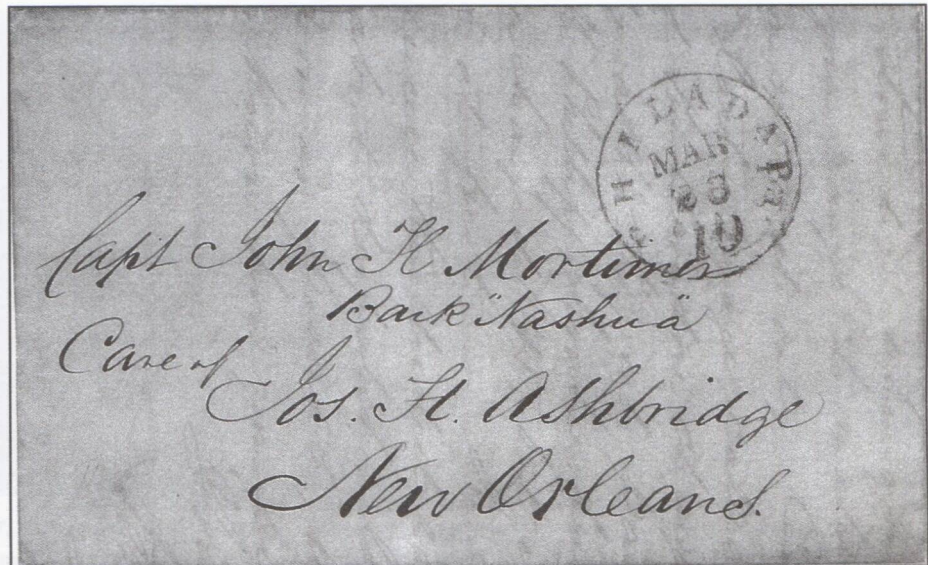 PHILADA Pa.
MAR
28
10
Capt John H Mortimer
Bark "Nashua"
Care of
Jos. H. Ashbridge
New Orleans.